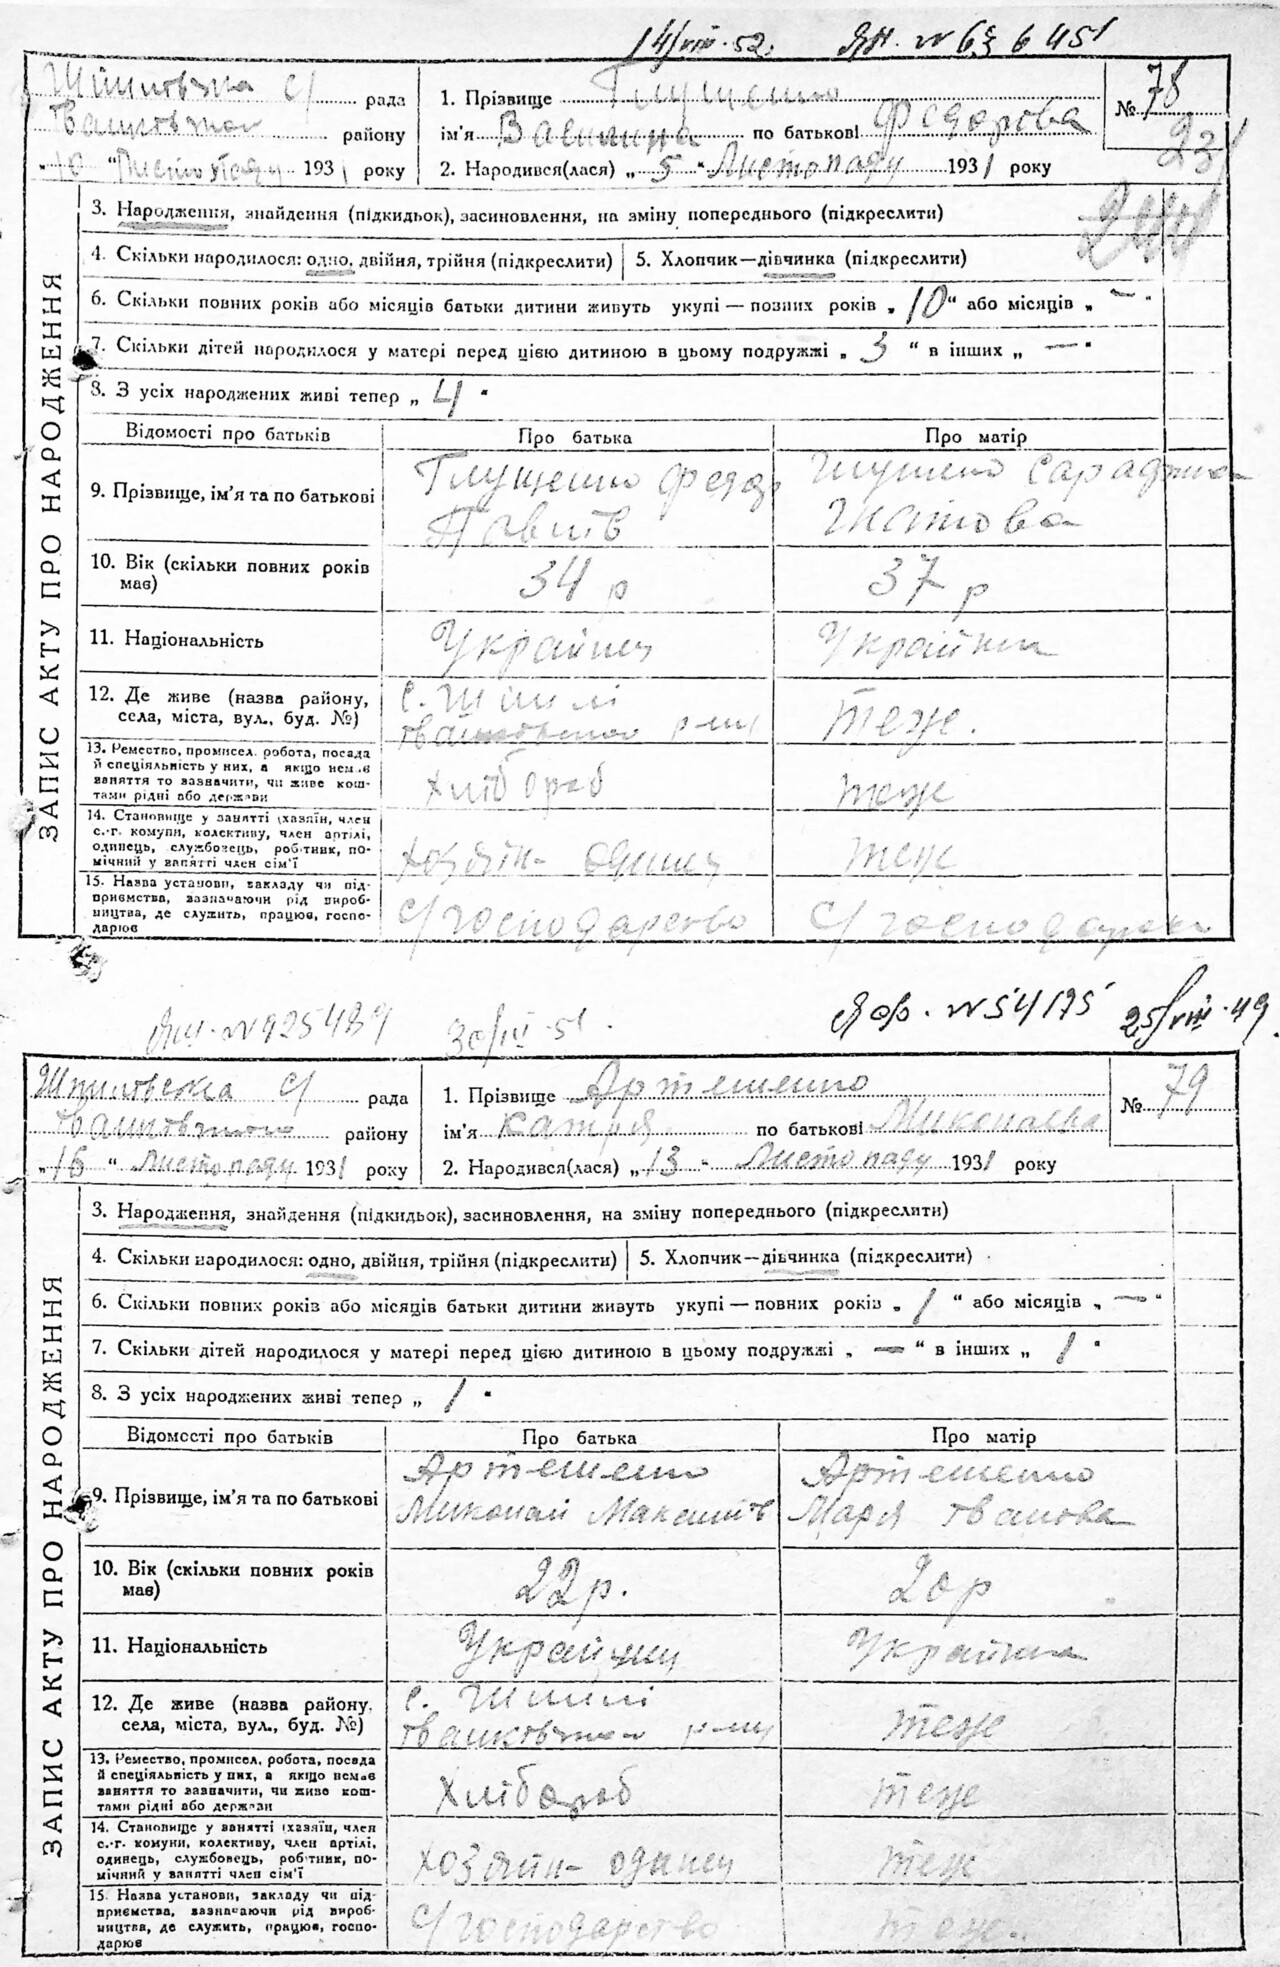 14/VIII-52.
Шпилівська с/ рада
Іваньківського району
"10" Листопаду 1931 року
1. Прізвище Глущенко
ім'я Василина по батькові Федорова
2. Народився(лася) „5" Листопаду 1931 року
№ 78
231
3. Народження, знайдення (підкидьок), засиновлення, на зміну попереднього (підкреслити)
4. Скільки народилося: одно, двійня, трійня (підкреслити)
5. Хлопчик—дівчинка (підкреслити)
6. Скільки повних років або місяців батьки дитини живуть укупі — повних років „10" або місяців „—"
7. Скільки дітей народилося у матері перед цією дитиною в цьому подружжі „3" в інших „—"
8. З усіх народжених живі тепер „4"
ЗАПИС АКТУ ПРО НАРОДЖЕННЯ
Відомості про батьків
Про батька
Про матір
9. Прізвище, ім'я та по батькові
Глущенко Федор
Павлів
10. Вік (скільки повних років
має)
34 р
37 р
11. Національність
Українец
Українка
12. Де живе (назва району,
села, міста, вул., буд. №)
с. Шпилі
теже.
13. Ремество, промисел, робота, посада
й спеціяльність у них, а якщо немає
заняття то зазначити, чи живе кош-
тами рідні або держави
Хлібороб
теже
14. Становище у занятті (хазяїн, член
с.-г. комуни, колективу, член артілі,
одинець, службовець, робітник, по-
мічний у занятті член сім'ї
хозяїн- одинец
теже
15. Назва установи, закладу чи під-
приємства, зазначаючи рід вироб-
ництва, де служить, працює, госпо-
дарює
с/господарство
с/господарство
30/IV-51.
№54175 25/VIII-49.
Шпилівська с/ рада
району
"15" Листопаду 1931 року
1. Прізвище Артеменко
ім'я Катря по батькові Миколаєва
2. Народився(лася) „13" Листопаду 1931 року
№ 79
3. Народження, знайдення (підкидьок), засиновлення, на зміну попереднього (підкреслити)
4. Скільки народилося: одно, двійня, трійня (підкреслити)
5. Хлопчик—дівчинка (підкреслити)
6. Скільки повних років або місяців батьки дитини живуть укупі — повних років „1" або місяців „—"
7. Скільки дітей народилося у матері перед цією дитиною в цьому подружжі „—" в інших „1"
8. З усіх народжених живі тепер „1"
ЗАПИС АКТУ ПРО НАРОДЖЕННЯ
Відомості про батьків
Про батька
Про матір
9. Прізвище, ім'я та по батькові
Артеменко
Миколай Максимів
Артеменко
Маря Іванова
10. Вік (скільки повних років
має)
22р.
20р
11. Національність
Українец
Українка
12. Де живе (назва району,
села, міста, вул., буд. №)
с. Шпилі
теже
13. Ремество, промисел, робота, посада
й спеціяльність у них, а якщо немає
заняття то зазначити, чи живе кош-
тами рідні або держави
Хлібороб
теже
14. Становище у занятті (хазяїн, член
с.-г. комуни, колективу, член артілі,
одинець, службовець, робітник, по-
мічний у занятті член сім'ї
хозяїн- одинец
теже
15. Назва установи, закладу чи під-
приємства, зазначаючи рід вироб-
ництва, де служить, працює, госпо-
дарює
с/господарство
теже.